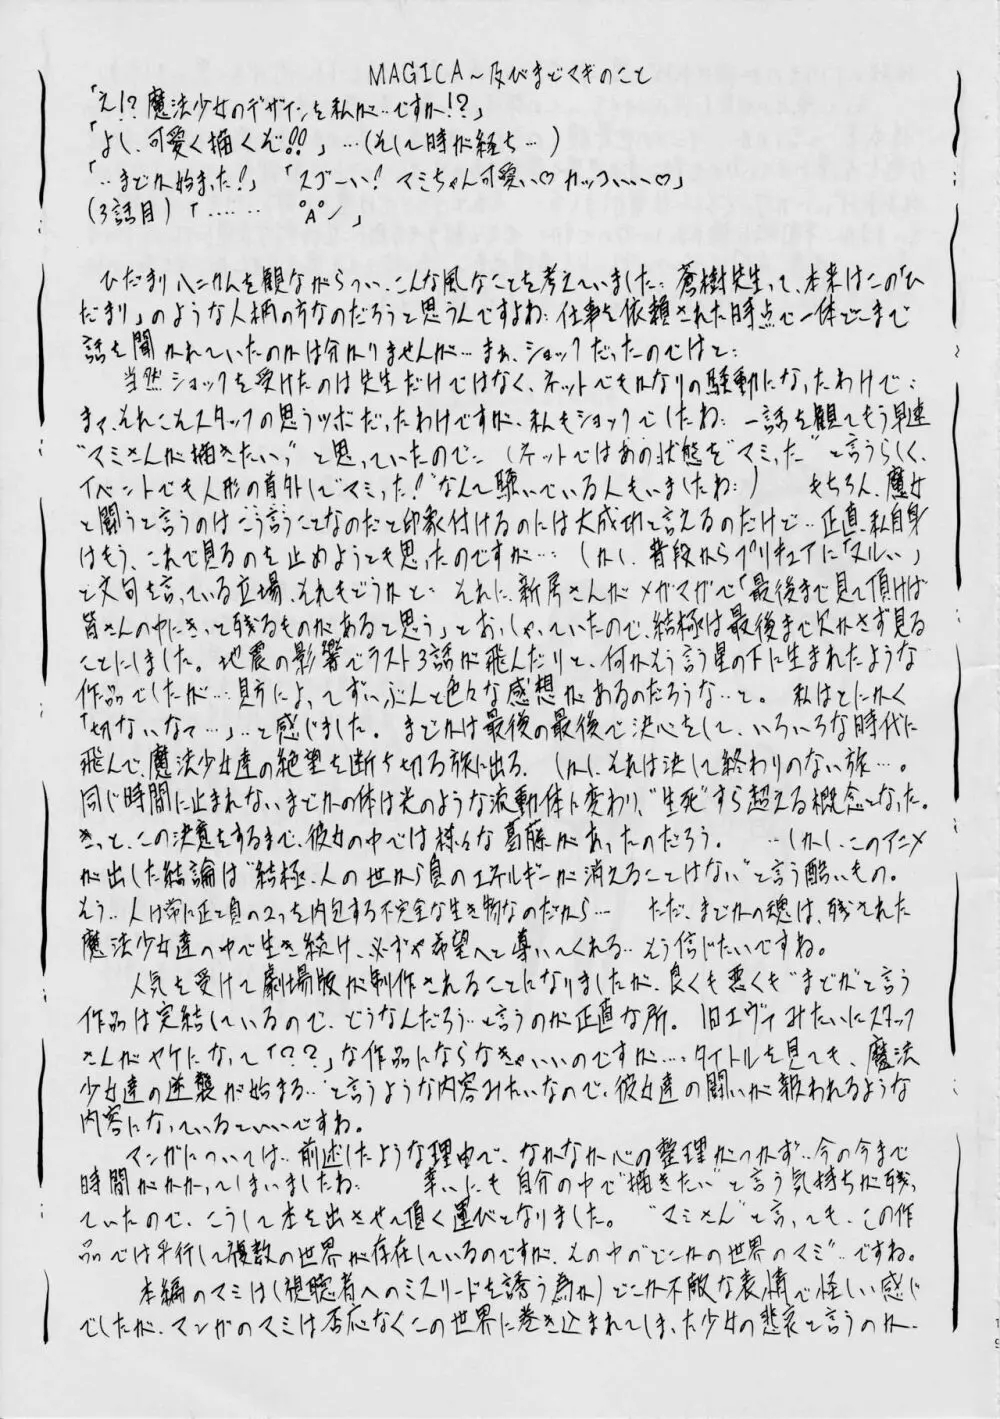 MAGICA～及びまどマギのこと
「え!?魔法少女のデザインを私が…ですか!?」
「よし、可愛く描くぞ!!」…(そして時が経ち…)
「…まどか始まった!」「スゴーい! マミちゃん可愛い♡ カッコいいい♡」
(3話目)「……　゜A゜ノ 」
ひだまりハニカムを観ながらつい、こんな風なことを考えていました… 蒼樹先生って、本来はこの「ひ
だまり」のような人柄の方なのだろうと思うんですよね… 仕事を依頼された時点で一体どこまで
話を聞かれていたのかは分かりませんが… まぁ、ショックだったのではと…
当然ショックを受けたのは先生だけではなく、ネットでもかなりの騒動になったわけで…
まァ、それこそスタッフの思うツボだったわけですが、私もショックでしたね… 一話を観てもう早速
"マミさんが描きたいっ" と思っていたので… (ネットではあの状態を"マミった" と言うらしく、
イベントでも人形の首外して"マミった!"なんて騒いでいる人もいましたね…) もちろん、魔女
と闘うと言うのはこう言うことなのだと印象付けるのには大成功と言えるのだけど… 正直、私自身
はもう、これで見るのを止めようとも思ったのですが… しかし、普段からプリキュアに「ヌルい」
と文句を言っている立場、それもどうかと… それに、新房さんがメガマガで「最後まで見て頂けば
皆さんの中にきっと残るものがあると思う」とおっしゃっていたので、結極は最後まで欠かさず見る
ことにしました。地震の影響でラスト3話が飛んだりと、何かもう言う星の下に生まれたような
作品でしたが… 見方によってずいぶんと色々な感想があるのだろうな…と。 私はとにかく
「切ないなァ…」…と感じました。まどかは最後の最後で決心をして、いろいろな時代に
飛んで、魔法少女達の絶望を断ち切る旅に出る。 しかし、それは決して終わりのない旅…。
同じ時間に止まれないまどかの体は光のような流動体に変わり、"生死"すら超える概念となった。
きっと、この決意をするまで、彼女の中では様々な葛藤があったのだろう。 …しかし、このアニメ
が出した結論は"結極、人の世から負のエネルギーが消えることはない"と言う酷いもの。
もう… 人は常に正と負の2つを内包する不完全な生き物なのだから… ただ、まどかの魂は、残された
魔法少女達の中で生き続け、必ずや希望へと導いてくれる… もう信じたいですね。
人気を受けて劇場版が制作されることになりましたが、良くも悪くも"まどか"と言う
作品は完結しているので、どうなんだろう…と言うのが正直な所。旧エヴァみたいにスタッフ
さんがヤケになって「??」な作品にならなきゃいいのですが…、タイトルを見ても、魔法
少女達の逆襲が始まる…と言うような内容みたいなので、彼女達の闘いが報われるような
内容になっているといいですね。
マンガについては… 前述したような理由で、なかなか心の整理がつかず… 今の今まで
時間がかかってしまいましたね… 幸いにも 自分の中で"描きたい"と言う気持ちが残っ
ていたので、こうして本を出させて頂く運びとなりました。 "マミさん"と言っても、この作
品では平行して複数の世界が存在しているのですが、その中の"どこかの世界のマミ"…ですね。
本編のマミは(視聴者へのミスリードを誘う為か)どこか不敵な表情で怪しい感じ
でしたが、マンガのマミは否応なくこの世界に巻き込まれてしまった少女の悲哀と言うのか、